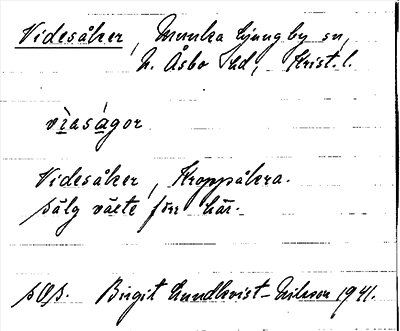 Videsåker, Munka Ljungby sn,
N. Åsbo hd, Krist. l.
vìaságor
Videsåker, Kroppåkra.
sälg växte förr här.
sOs. Birgit Lundkvist-Nilsson 1941.